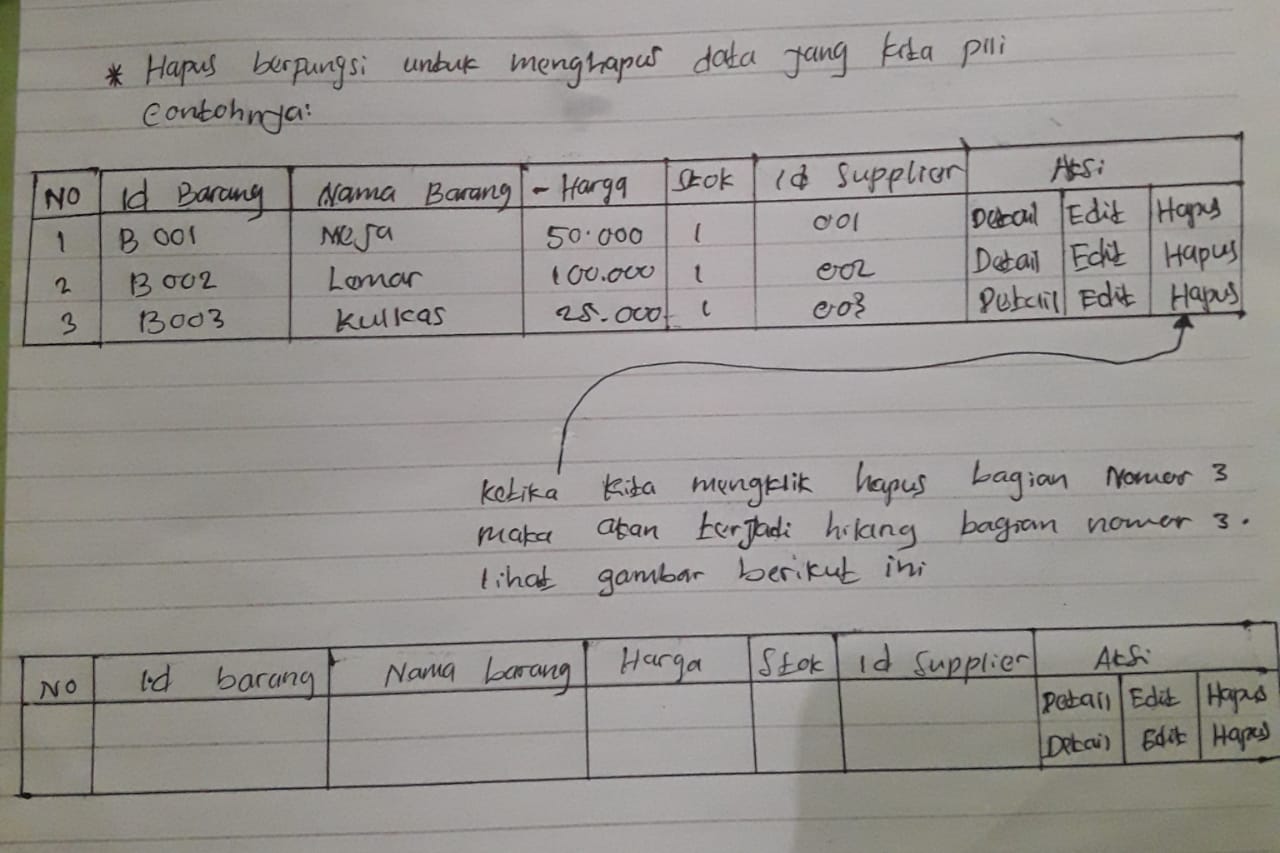 * Hapus berpungsi untuk menghapus data yang kita pili
Contohnya:
NO Id Barang Nama Barang - Harga Stok Id Supplier Aksi
1 B 001 Meja 50.000 1 001 Detail Edit Hapus
2 B 002 Lemar 100.000 1 002 Detail Edit Hapus
3 B003 Kulkas 25.000 1 003 Detail Edit Hapus
Ketika kita mengklik hapus bagian Nomer 3
maka akan terjadi hilang bagian nomer 3.
lihat gambar berikut ini
NO Id barang Nama barang Harga Stok Id Supplier Aksi
Detail Edit Hapus
Detail Edit Hapus